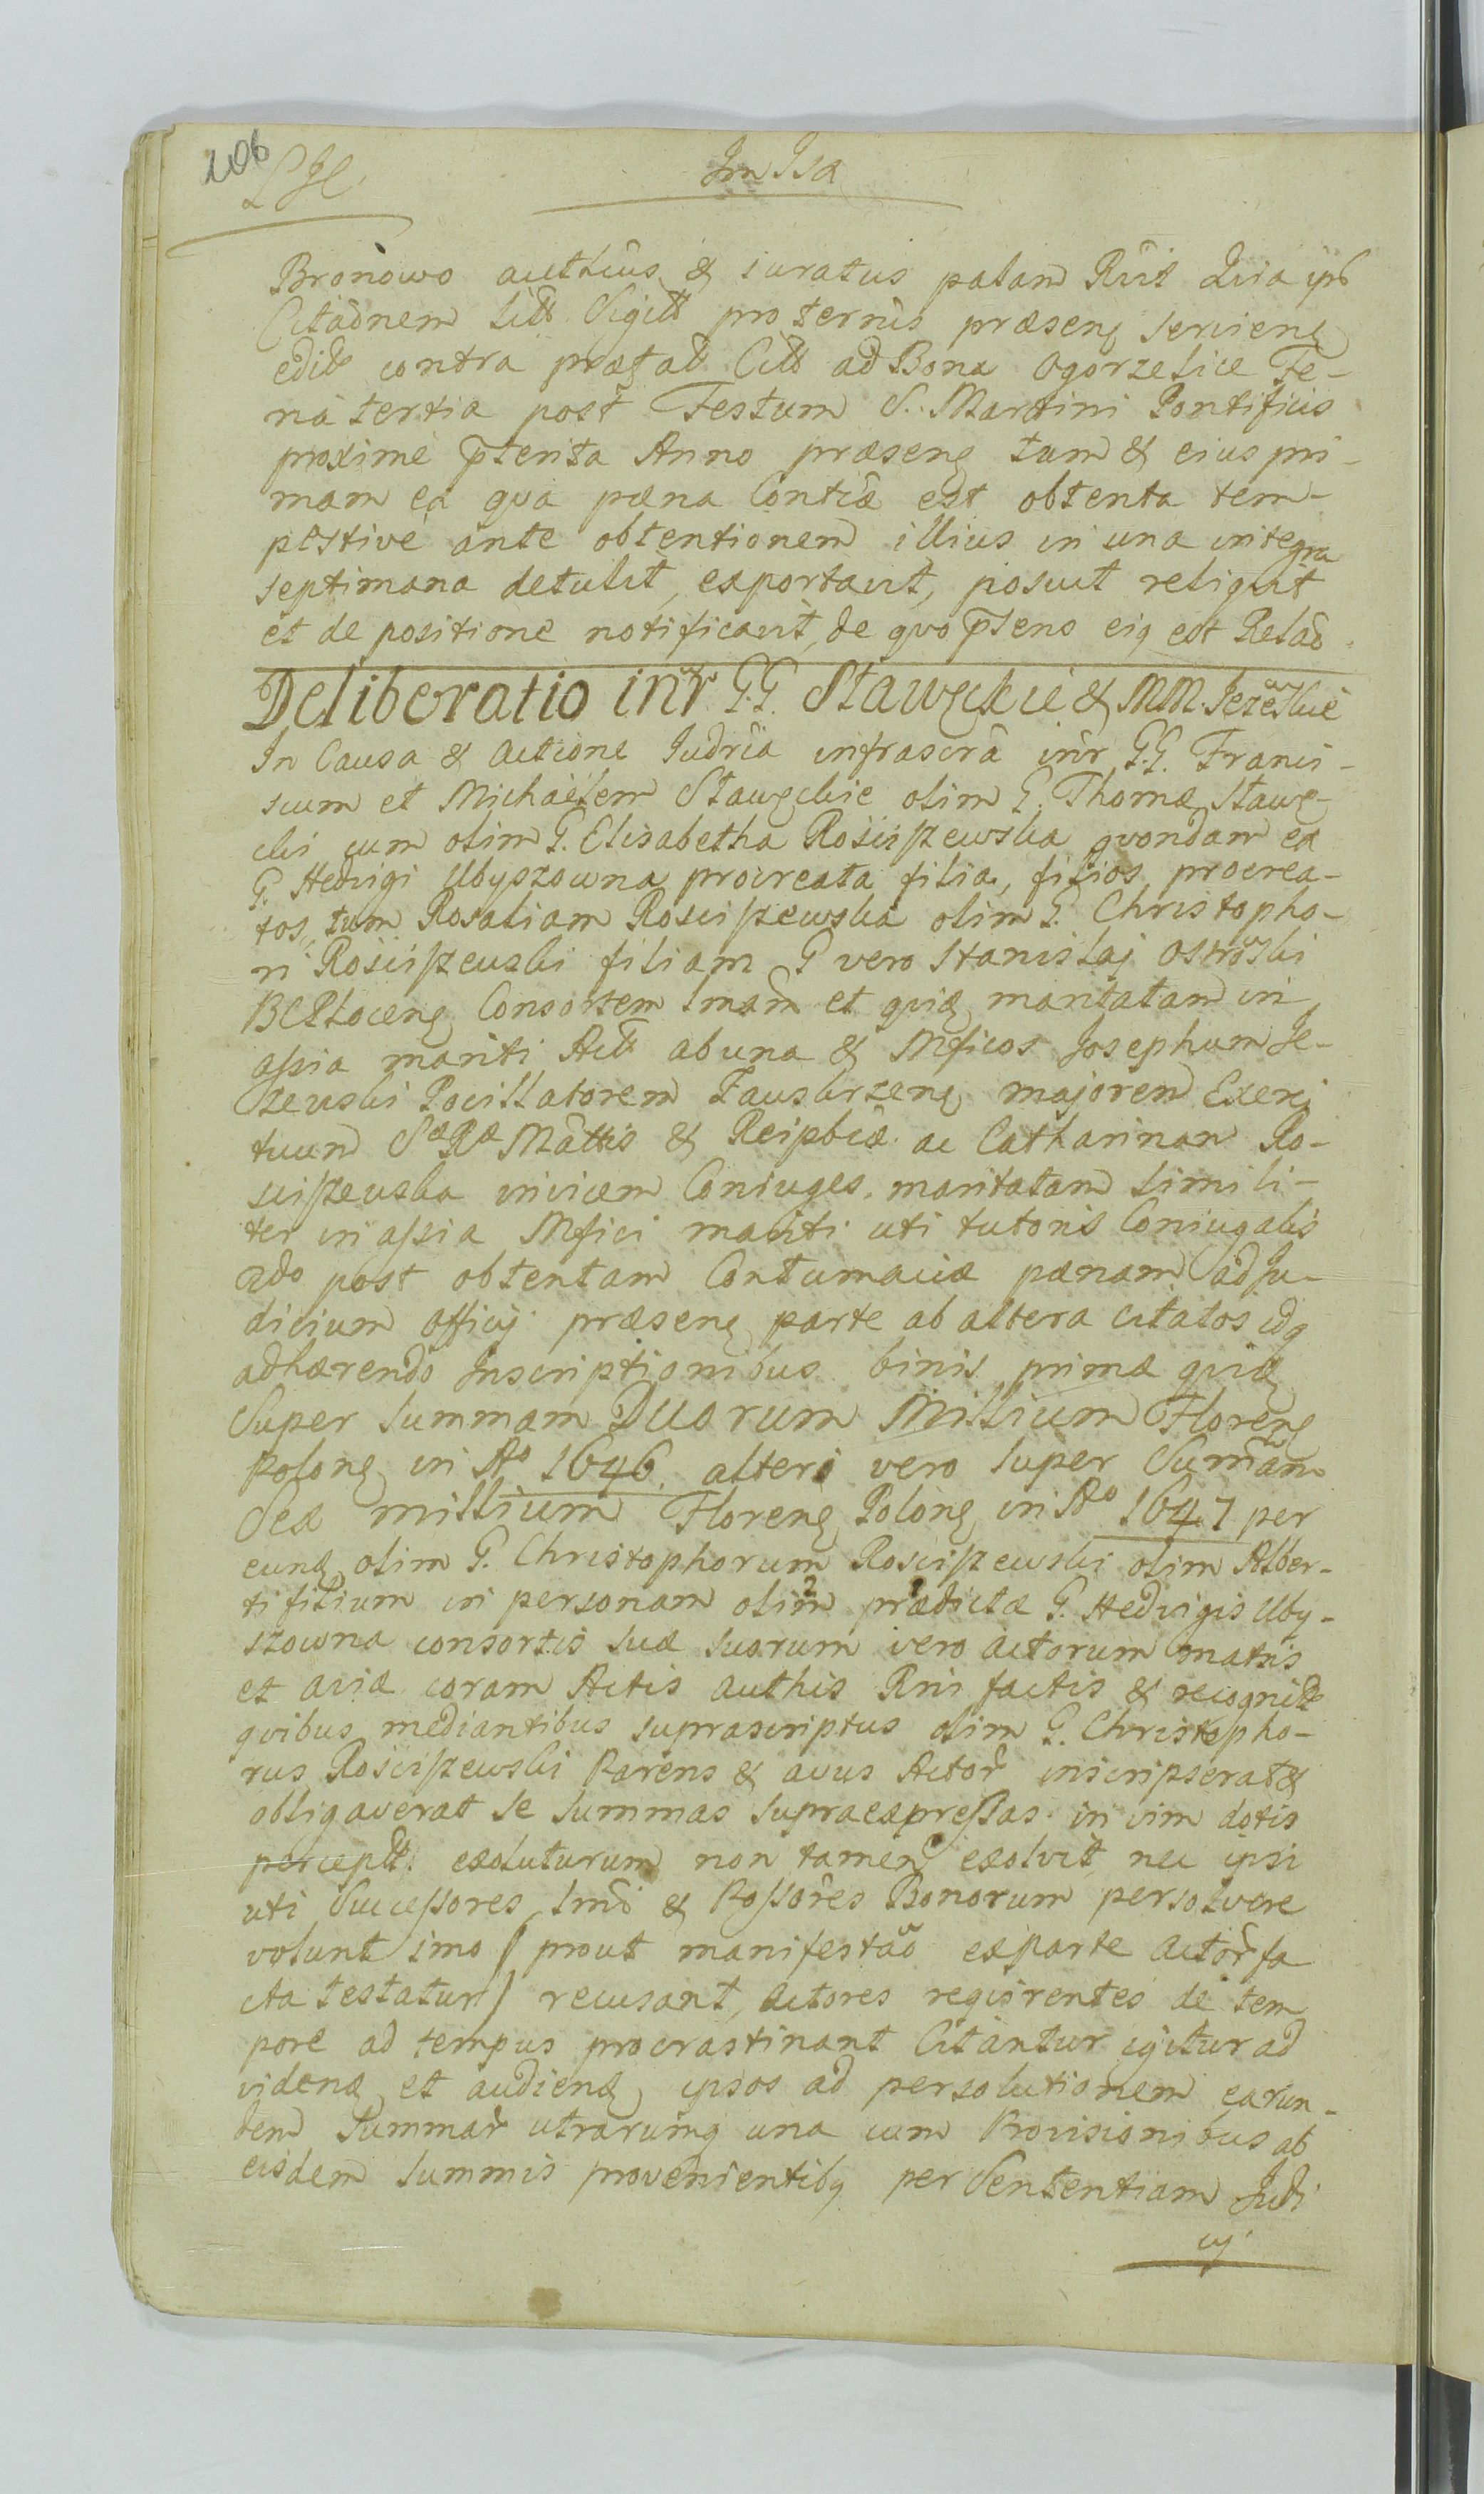 206
Bronowo authûs & iuratus palam Rñit Quia ips
Citãdnem Litt Sigill pro termis præseng servieng
edit contra prætat Citt ad Bona Ogorzelice Fe-
ria tertia post Festum S. Martini Pontificis
proxime pterita Anno præseng tum & eius pri-
mam ex qva pæna Contiæ est obtenta tem-
pestive ante obtentionem illius in una integra
septimana detulit, exportavit, posuit reliqvit
et de positione notificavit, de qvo pteno eiq est Relaõ.
Deliberatio intr G.G. Stawęckie & MM. Jezewskie
In Causa & actione Iudria infrascrã intr G.G. Franci-
scum et Michaëlem Stawęckie olim G. Thomæ Stawę-
cki cum olim G. Elisabetha Rościszewska qvondam ex
G. Hedvigi Ubyszowna procreata filia, filios procrea-
tos, tum Rosaliam Rosciszewska olim G. Christopho-
ri Rościszewski filiam G vero Stanislaj Ostrowski
BCPloceng Consortem lmam et qviæ maritatam in
assia mariti Act ab una & Mficos Josephum Je-
zewski Pocillatorem Fauskrzeng majorem Exerci
tuum Sæ Ræ Mâttis & Reipbcæ ac Catharinam Ro-
sciszewska invicem Coniuges, maritatam simili-
ter in assia Mfici mariti uti tutoris Coniugalis
ad post obtentam Contumaciæ pænam ad Ju-
dicium officij præseng parte ab altera citatos idq
adhærendo Inscriptionibus binis primæ qviæ
Super Summam Duorum Millium Floreng
Polong in Ao 1646 alteri vero super Sumam
Sex millium Floreng Polong in Ao 1647 per
eung olim G. Christophorum Rosciszewski olim Alber-
ti filium in personam olim prædictæ G. Hedvigis Uby-
szowna consortis suæ suorum vero actorum matris
et aviæ coram Actis authis Rñi factis & recognitt
qvibus mediantibus suprascriptus olim G. Christopho-
rus Rościszewski Parens & avus Actor inscripserat &
obligaverat se summas supraexpressas in vim dotis
percept exoluturum non tamen exolvit nec ipsi
uti Successores lmi & Possores Bonorum persolvere
volunt imo / prout manifestaõ exparte Actor fa
cta testatur / recusant, Actores reqvirentes de tem
pore ad tempus procrastinant Citantur igitur ad
videng et audieng ipsos ad persolutionem earun-
dem Summar utrarumq una cum Provisionibus ab
eisdem summis provenientibq per Sententiam Judi
cij